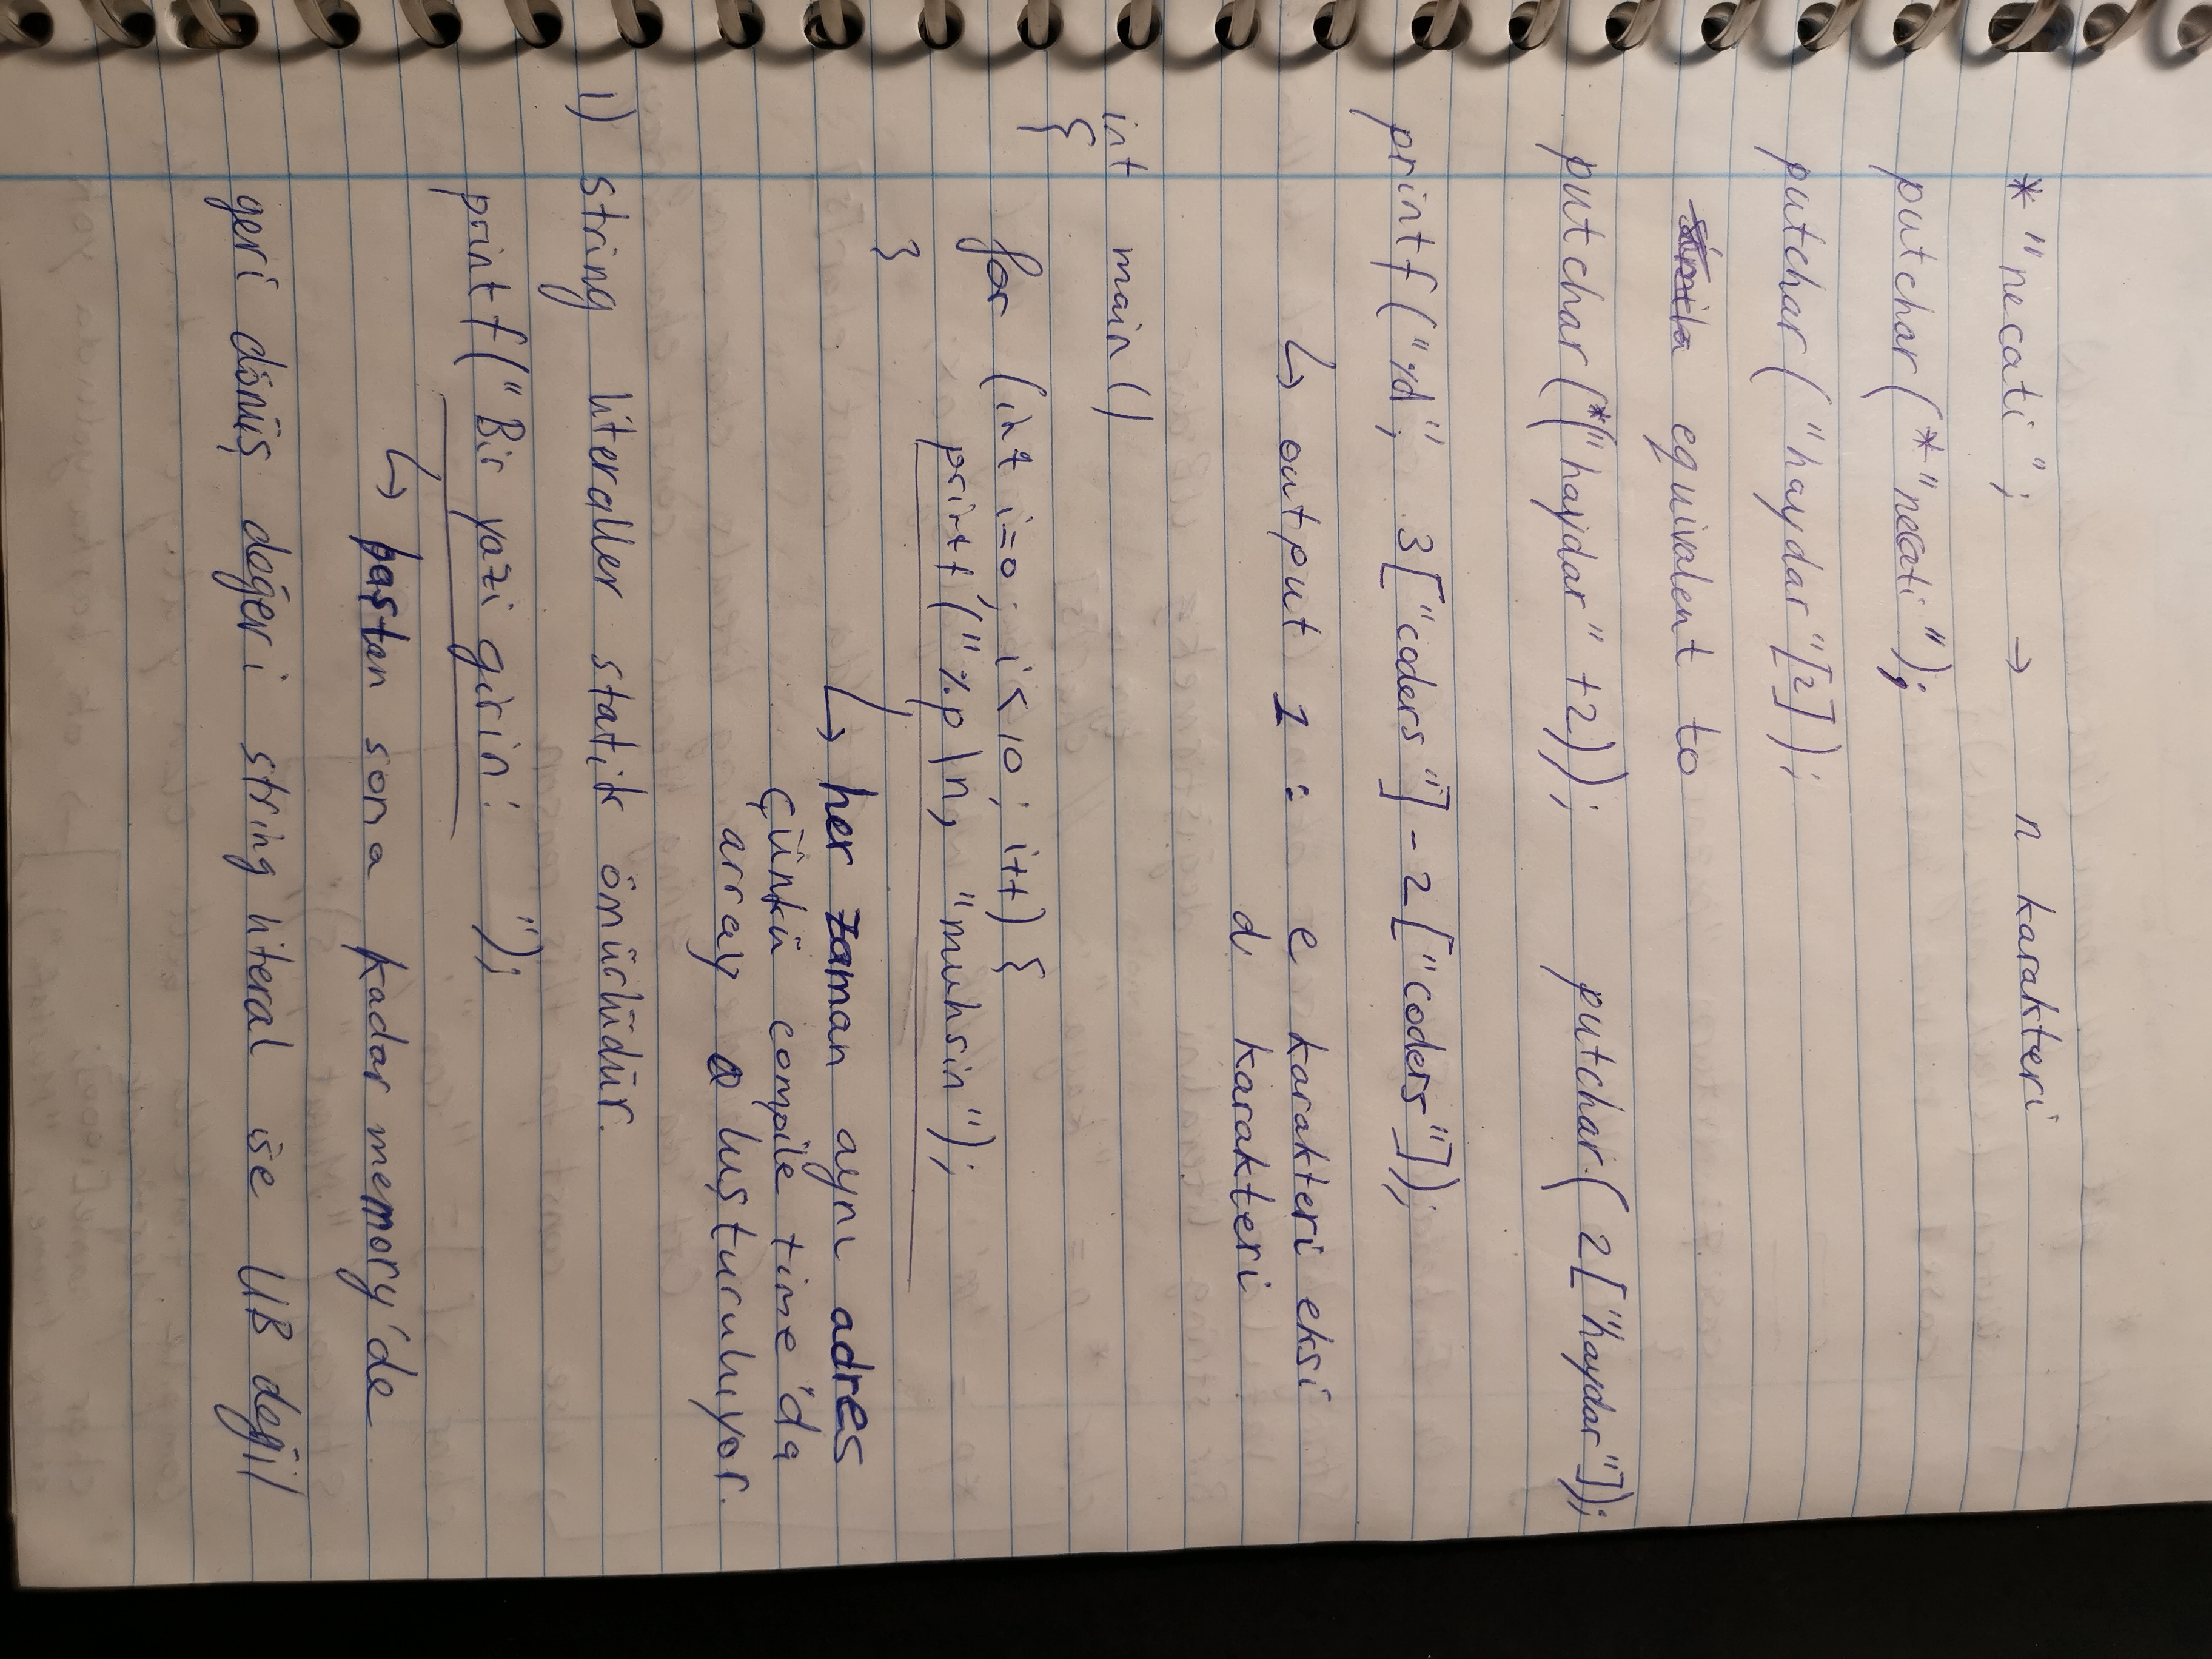 * "necati"; → n karakteri
putchar(*"necati");
putchar("haydar"[2]);
equivalent to
putchar(*("haydar" +2)); putchar(2["haydar"]);
printf("%d", 3["coders"] - 2["coders"]);
↳ output 1 : e karakteri eksi
d karakteri
int main()
{
for (int i=0; i<10; i++) {
printf("%p\n, "muhsin");
}
↳ her zaman aynı adres
çünkü compile time'da
array oluşturuluyor.
1) string literaller statik ömürlüdür.
printf("Bir yazi girin: ");
↳ baştan sona kadar memory'de
geri dönüş değeri string literal ise UB değil